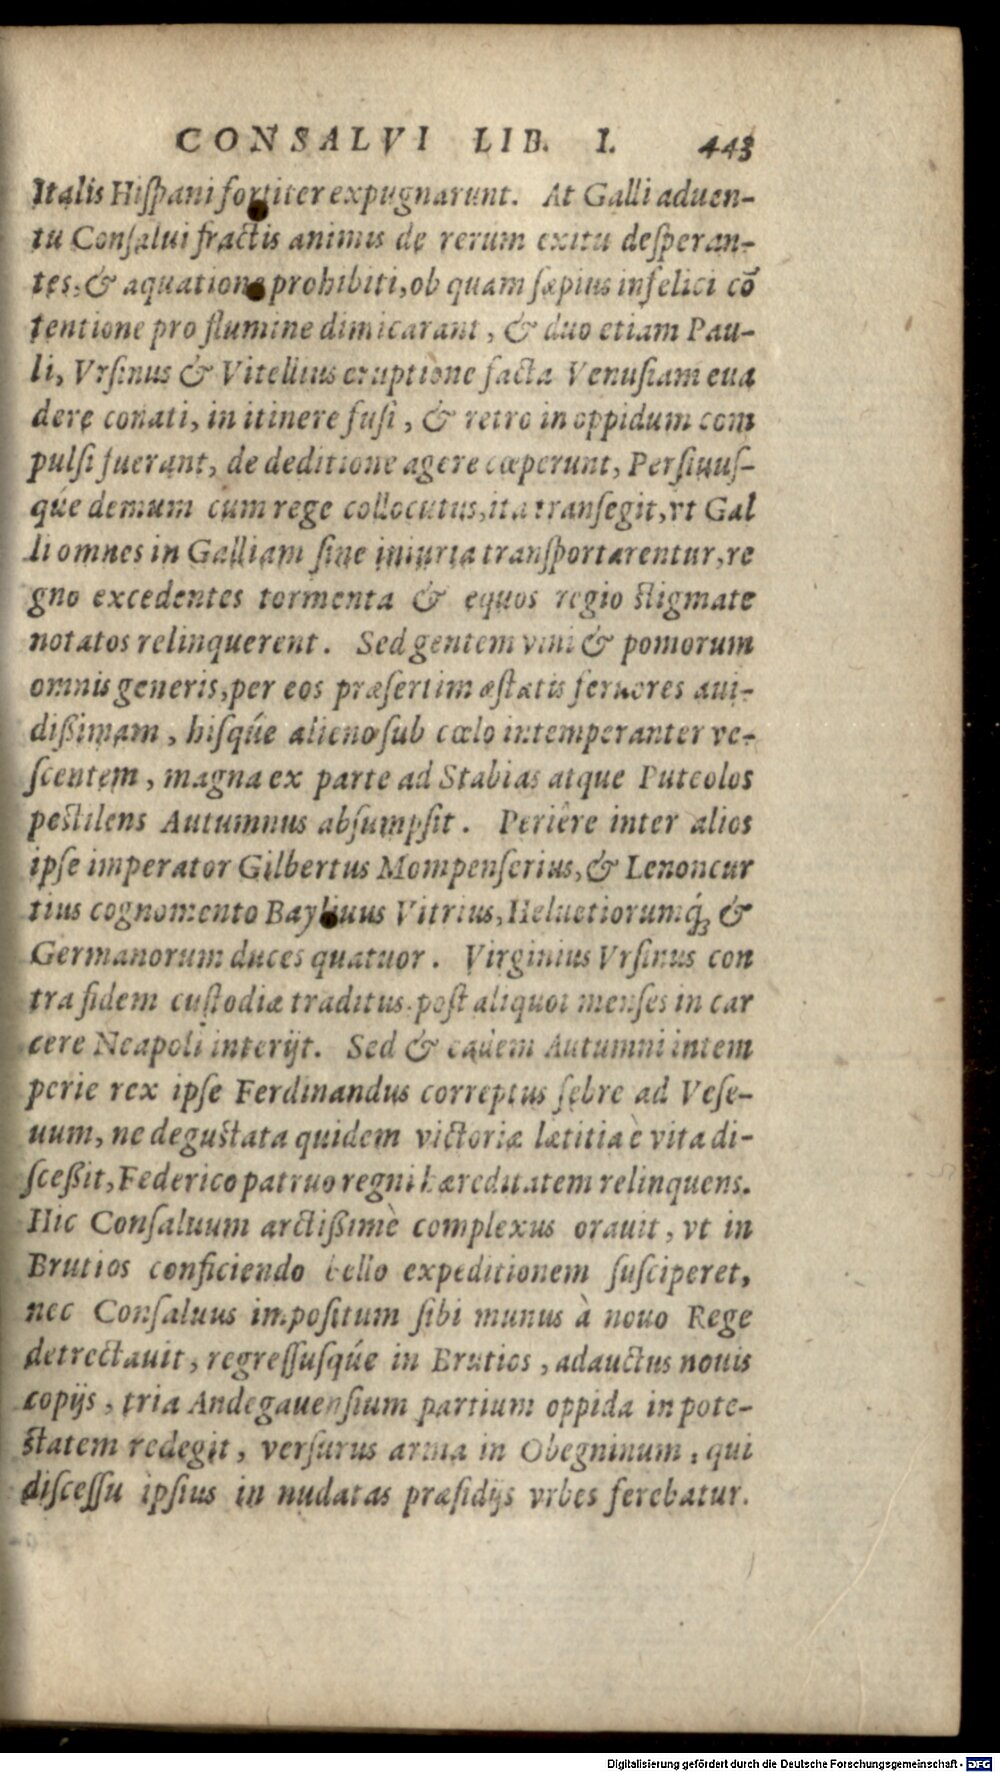 CONSALVI LIB. I. 443
Italis Hiſpani fortiter expugnarunt. At Galli aduen-
tu Conſalui fractis animis de rerum exitu deſperan-
tes, & aquatione prohibiti, ob quam ſæpius infelici cō
tentione pro flumine dimicarant, & duo etiam Pau-
li, Vrſinus & Vitellius eruptione facta Venuſiam eua
dere conati, in itinere fuſi, & retro in oppidum com
pulſi fuerant, de deditione agere cœperunt, Perſiuuſ-
qúe demum cum rege collocutus, ita tranſegit, vt Gal
li omnes in Galliam ſine iniuria tranſportarentur, re
gno excedentes tormenta & equos regio ſtigmate
notatos relinquerent. Sed gentem vini & pomorum
omnis generis, per eos præſertim æſtatis feruores aui-
dißimam, hiſqúe alieno ſub cœlo intemperanter ve-
ſcentem, magna ex parte ad Stabias atque Puteolos
peſtilens Autumnus abſumpſit. Periêre inter alios
ipſe imperator Gilbertus Mompenſerius, & Lenoncur
tius cognomento Bayliuus Vitrius, Heluetiorumq́; &
Germanorum duces quatuor. Virginius Vrſinus con
tra fidem cuſtodiæ traditus, poſt aliquot menſes in car
cere Neapoli interijt. Sed & eadem Autumni intem
perie rex ipſe Ferdinandus correptus febre ad Veſe-
uum, ne deguſtata quidem victoriæ lætitia è vita di-
ſceßit, Federico patruo regni hæreditatem relinquens.
Hic Conſaluum arctißimè complexus orauit, vt in
Brutios conficiendo bello expeditionem ſuſciperet,
nec Conſaluus impoſitum ſibi munus à nouo Rege
detrectauit, regreſſuſqúe in Brutios, adauctus nouis
copijs, tria Andegauenſium partium oppida in pote-
ſtatem redegit, verſurus arma in Obegninum, qui
diſceſſu ipſius in nudatas præſidijs vrbes ferebatur.
Digitalisierung gefördert durch die Deutsche Forschungsgemeinschaft - DFG